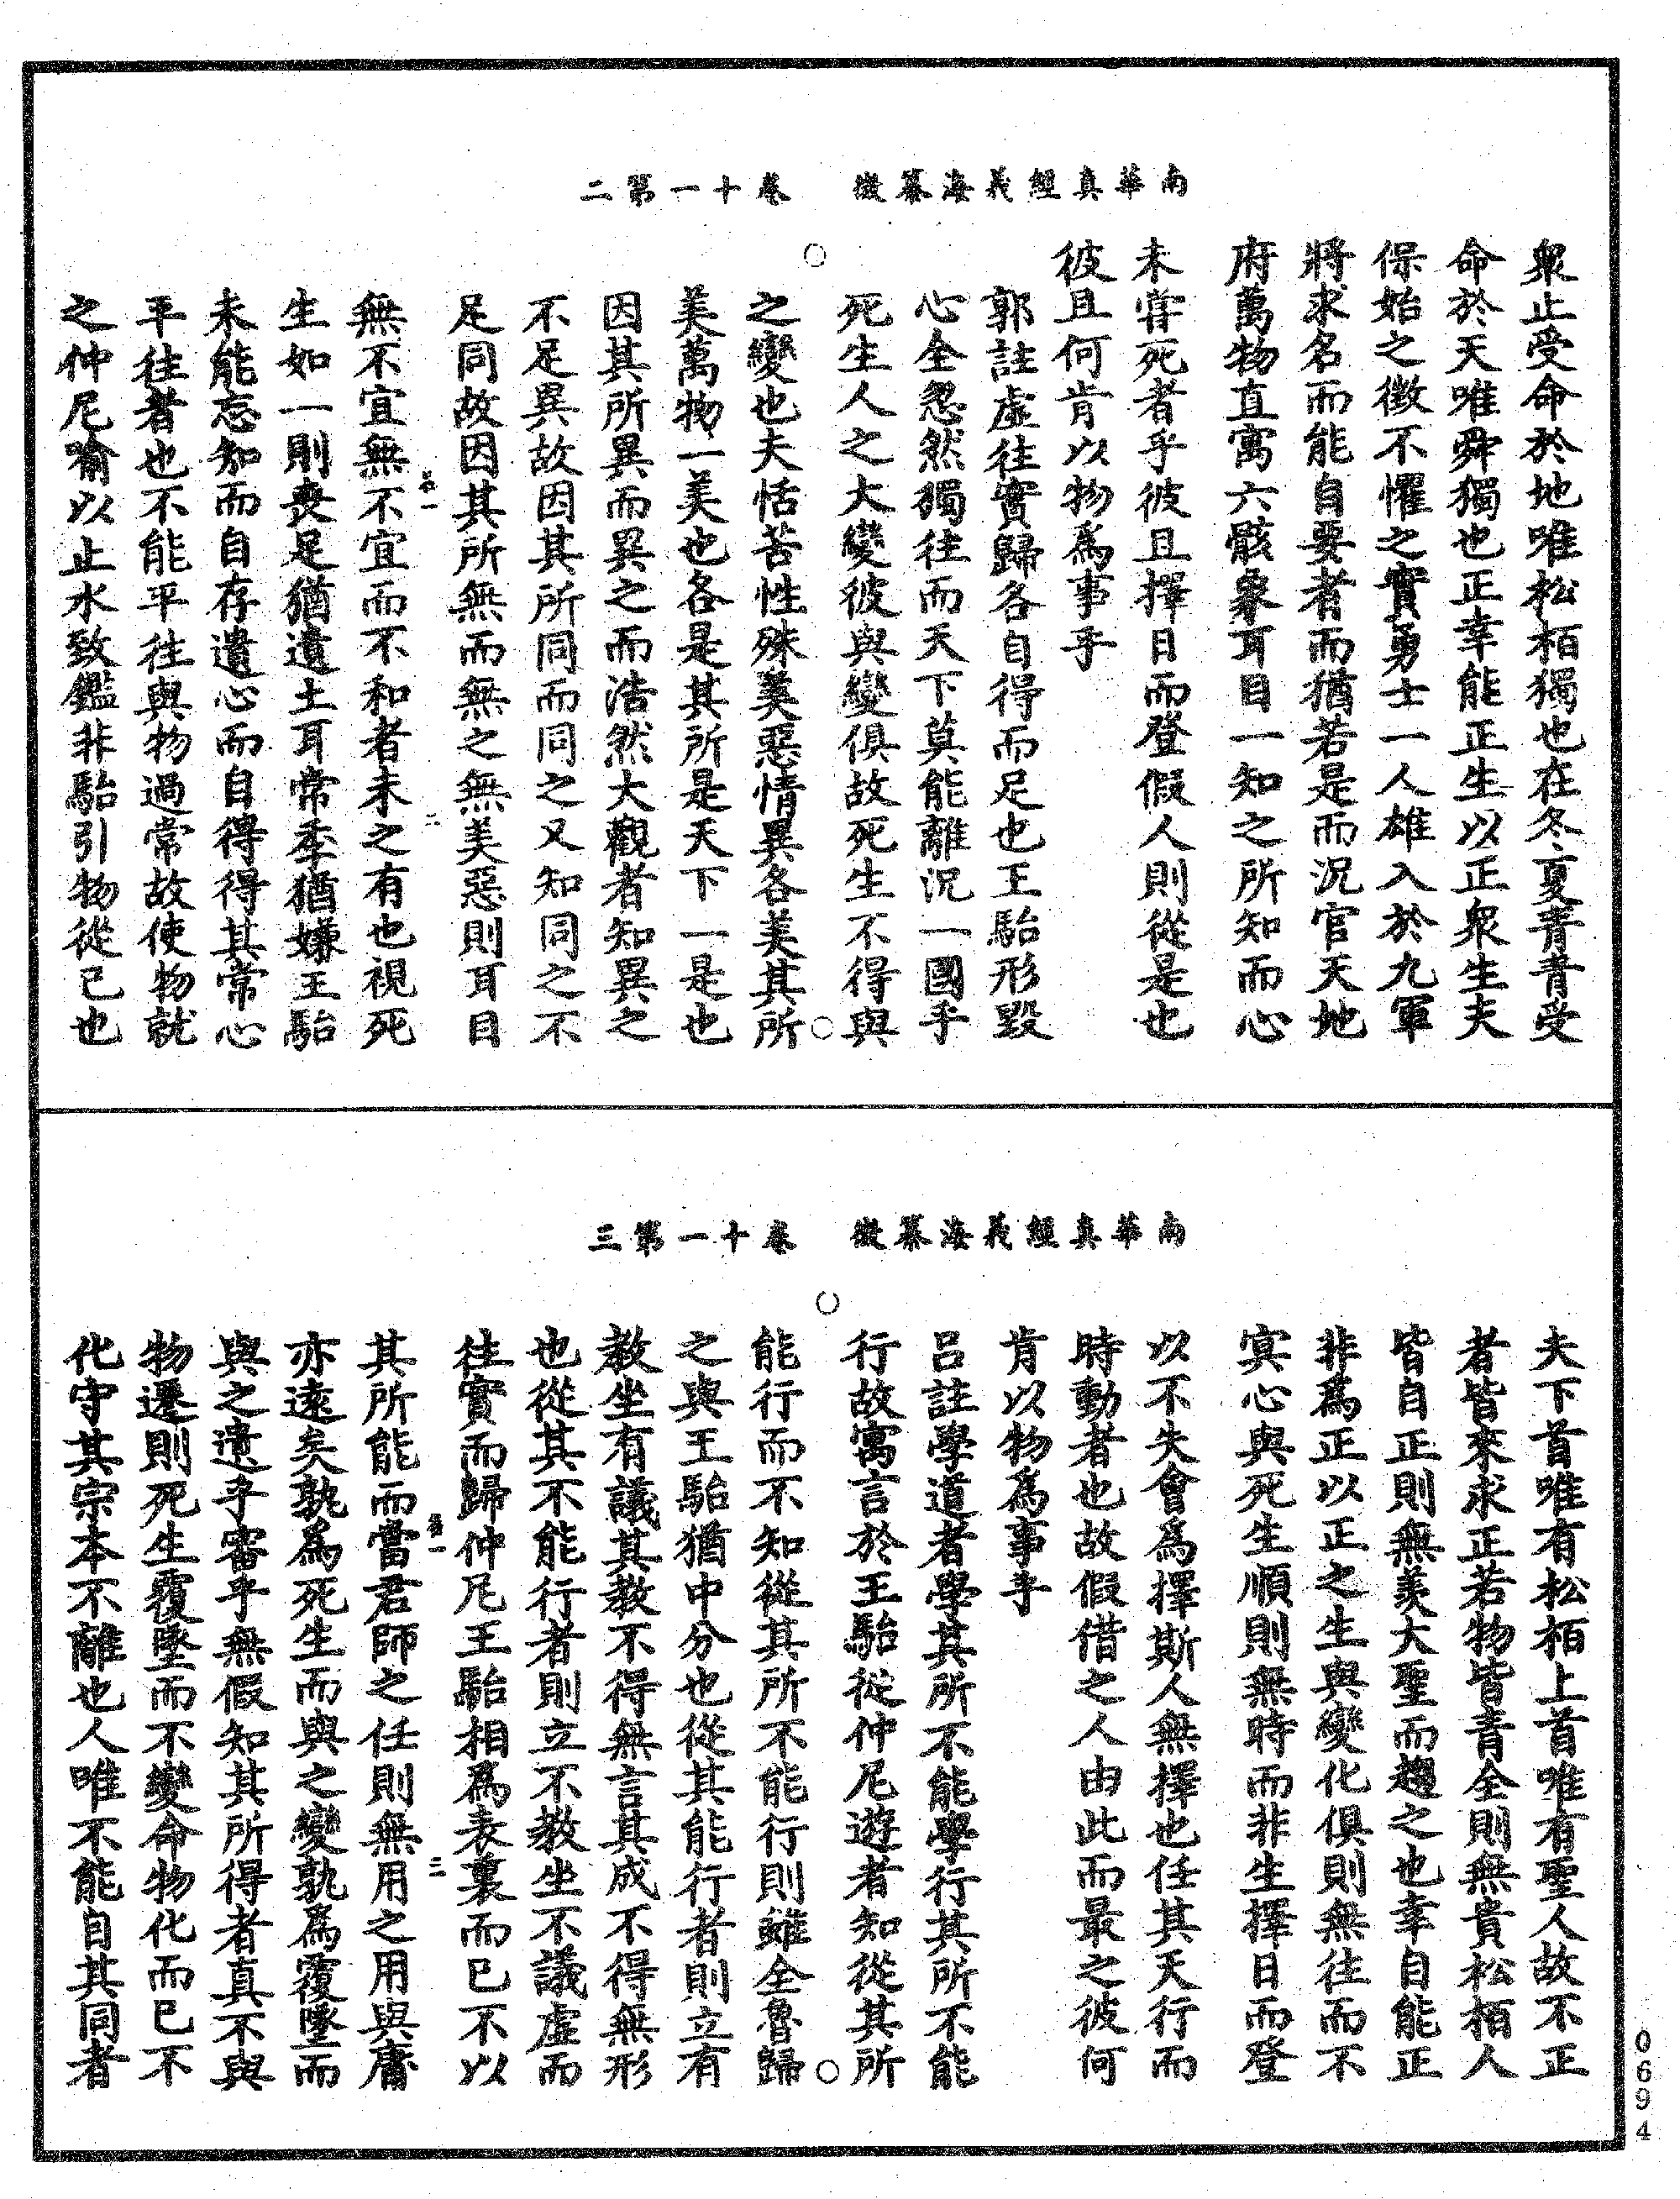 南華真經義海纂微　卷十一第二
眾止受命於地唯松栢獨也在冬夏青青受
命於天唯舜獨也正幸能正生以正眾生夫
保始之徵不懼之實勇士一人雄入於九軍
將求名而能自要者而猶若是而況官天地
府萬物直寓六骸象耳目一知之所知而心
未嘗死者乎彼且擇日而登假人則從是也
彼且何肯以物為事乎
郭註虛往實歸各自得而足也王駘形毀
心全忽然獨往而天下莫能離況一國乎
死生人之大變彼與變俱故死生不得與
之變也夫恬苦性殊美惡情異各美其所
美萬物一美也各是其所是天下一是也
因其所異而異之而浩然大觀者知異之
不足異故因其所同而同之又知同之不
足同故因其所無而無之無美惡則耳目
無不宜無不宜而不和者未之有也視死
生如一則喪足猶遺土耳常季猶嫌王駘
未能忘知而自存遺心而自得得其常心
平往者也不能平往與物過常故使物就
之仲尼喻以止水致鑑非駘引物從己也
南華真經義海纂微　卷十一第三
夫下首唯有松栢上首唯有聖人故不正
者皆來求正若物皆青全則無貴松栢人
皆自正則無羨大聖而趨之也幸自能正
非為正以正之生與變化俱則無往而不
冥心與死生順則無時而非生擇日而登
以不失會為擇斯人無擇也任其天行而
時動者也故假借之人由此而最之彼何
肯以物為事乎
呂註學道者學其所不能學行其所不能
行故寓言於王駘從仲尼遊者知從其所
能行而不知從其所不能行則雖全魯歸
之與王駘猶中分也從其能行者則立有
教坐有議其教不得無言其成不得無形
也從其不能行者則立不教坐不議虛而
往實而歸仲尼王駘相為表裏而已不以
其所能而當君師之任則無用之用與庸
亦遠矣孰為死生而與之變孰為覆墜而
與之遺乎審乎無假知其所得者真不與
物遷則死生覆墜而不變命物化而已不
化守其宗本不離也人唯不能自其同者
0694